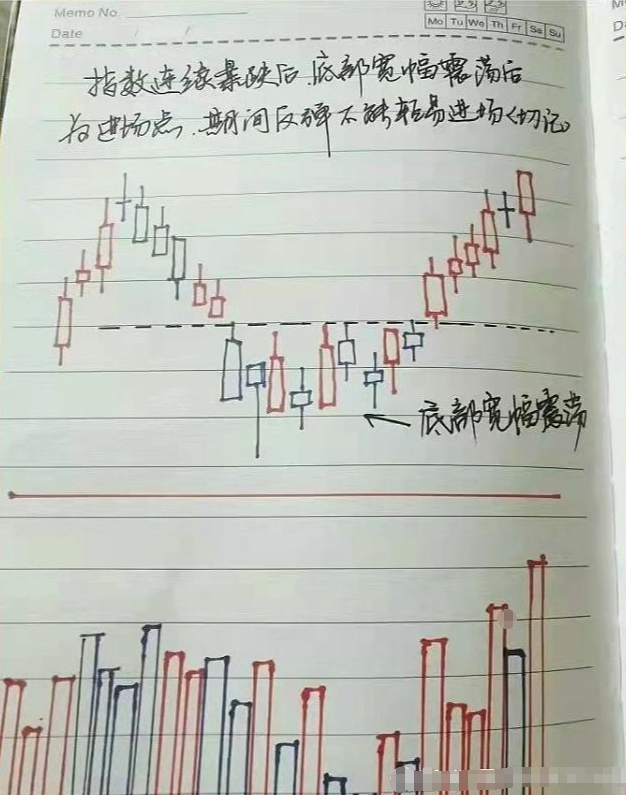 Memo No.
Mo Tu We Th Fr Sa Su
Date / /
指数连续暴跌后底部宽幅震荡后
为进场点.期间反弹不能轻易进场(切记)
底部宽幅震荡